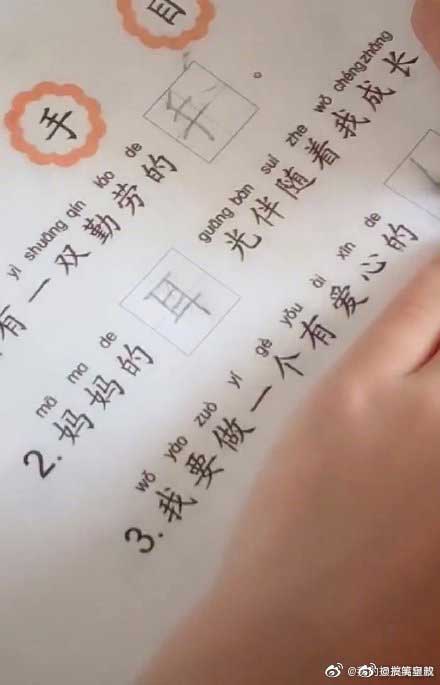 手
yì shuāng qín láo de
有一双勤劳的手。
mā ma de guāng bàn suí zhe wǒ chéngzhǎng
2.妈妈的耳光伴随着我成长
wǒ yào zuò yí gè yǒu ài xīn de
3.我要做一个有爱心的